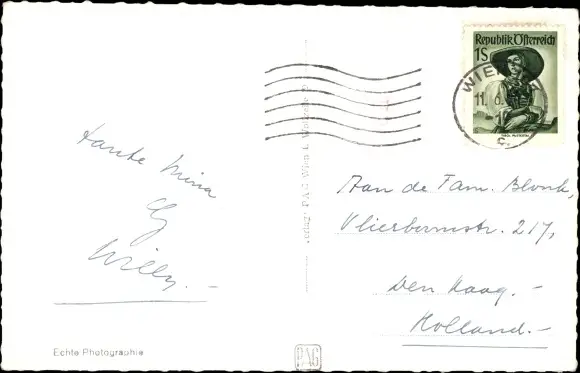 Republik Österreich
1S
WIEN
11. 6.
C
Tante Mina
Willy.-
Aan de Fam. Blonk,
Vlierboomstr. 217,
Den Haag.-
Holland.-
Verlag: P.A.G. Wien
Echte Photographie
PAG